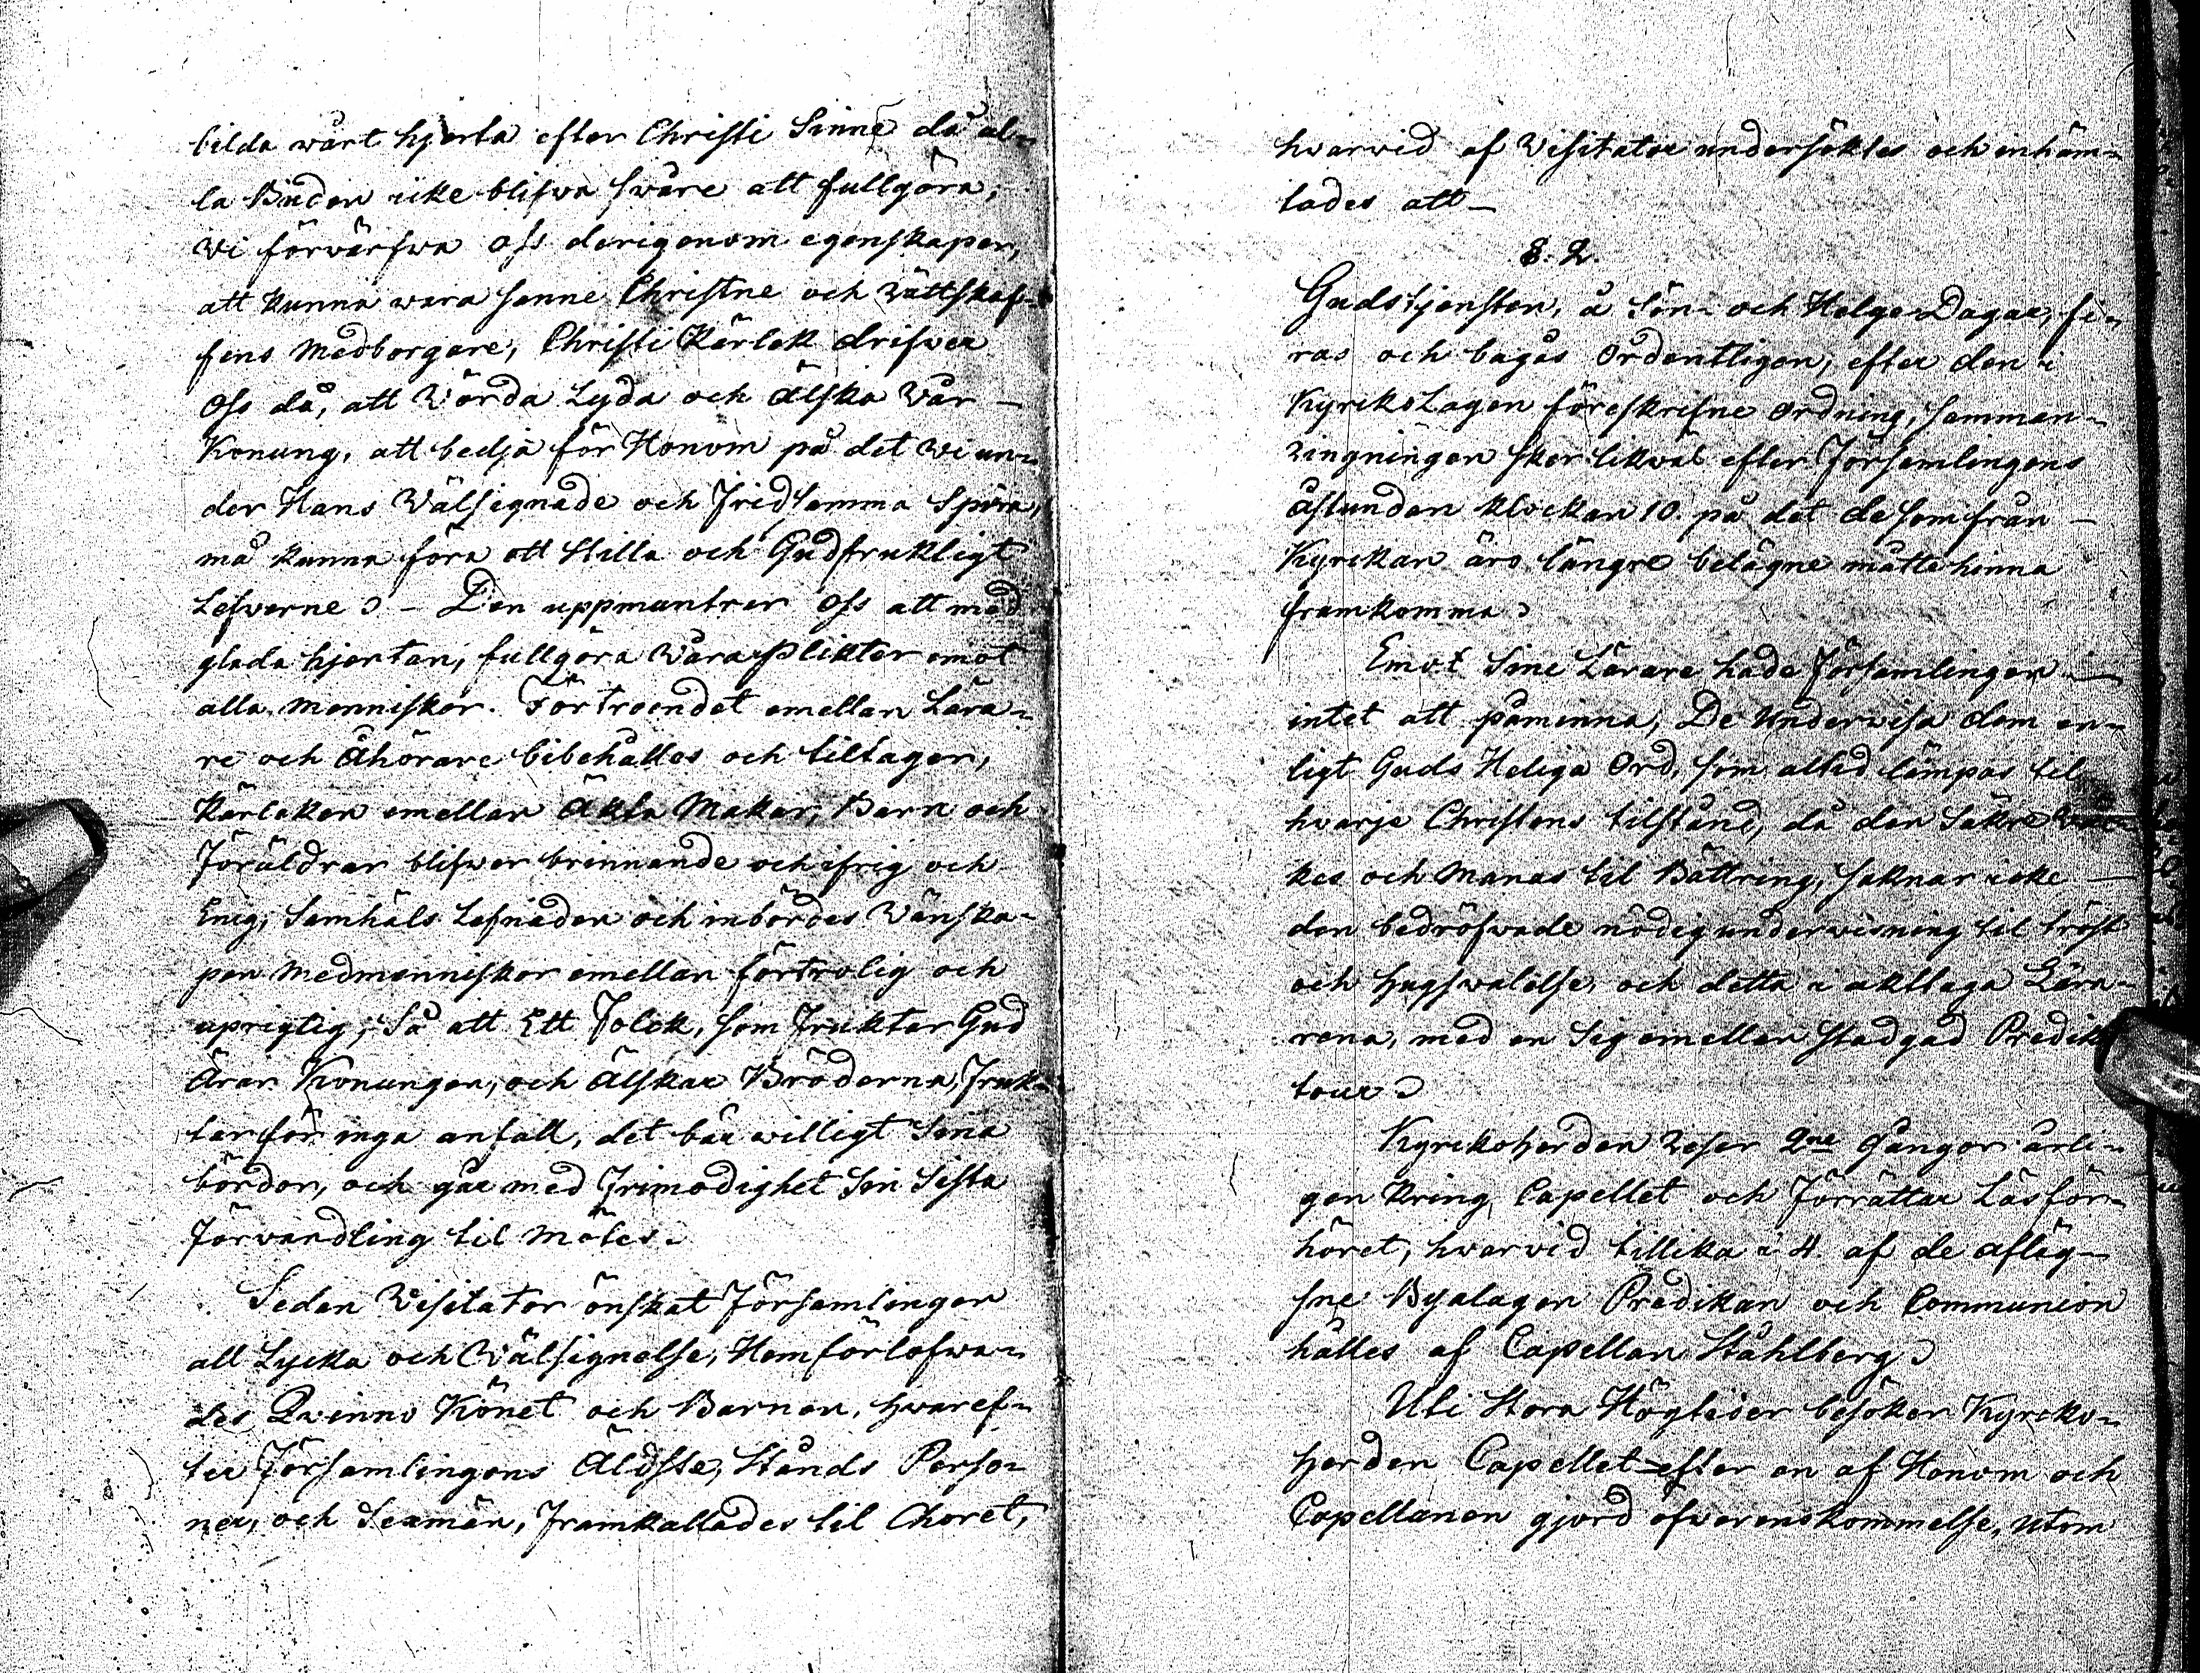 bilda wårt hjerta efter Christi Sinne då al-
la Buden icke blifwa swåre att fullgöra,
wi förvärfwa oss derigenom egenskaper,
att kunna wara sanne Christne och Rättskaf-
fens Medborgare, Christi Kärlek drifwer
oss då, att Wörda Lyda och älska Wår -
Konung, att bedja för Honom på det wi un-
der Hans Wälsignade och Fridsamma Spira,
må kunna föra ett stilla och Gudfruktigt
Lefwerne. - Den uppmuntrer oss att med
glada hjertan, fullgöra Wåra plikter emot
alla Menniskor. Förtroendet emellan Lära-
re och åhörare bibehålles och tiltager,
Kärleken emellan äkta Makar, Barn och
Föräldrar blifwer brinnande och ifrig och
Enig, Samhäls Lefnaden och inbördes Wänska-
pen Medmenniskor emellan förtrolig och
uprigtig, Så att Ett Folck, som Fruktar Gud
Ärar Konungen, och älskar Bröderna, Fruk-
tar för inga anfall, det bär willigt Sina
bördor, och går med Frimodighet Sin Sista
Förvandling til mötes.
Sedan Visitator önskat Församlingen
all Lycka och Wälsignelse, Hemförlofwa-
des Qvinno Könet och Barnen, hvaref-
ter Församlingens Äldste, Stånds Perso-
ner, och Sexmän, Framkallades til Choret,
hvarvid af Visitator undersöktes och inhäm-
tades att -
§. 2.
Gudstjensten, å Sön- och Helge Dagar, fi-
ras och begås ordentligen, efter den i
KyrckoLagen föreskrifne ordning, samman-
ringningen sker likväl efter Församlingens
åstundan klockan 10. på det de som från -
Kyrckan äro längre belägne måtte hinna
framkomma.
Emot Sine Lärare hade Församlingen -
intet att påminna, De Underwisa dem en-
ligt Guds Heliga Ord, som altid lämpas til
hvarje Christens tilstånd, då den Säkre Wäc-
kes och Manas til Bättring, saknar icke -
den bedröfwade nödig underwisning til tröst
och hugswalelse, och detta i akttaga Lära-
rena, med en Sig emellan stadgad Predik
tour.
Kyrckoherden reser 2ne gångor årli-
gen kring Capellet och Förrättar Läsför-
höret, hvarvid tillika i 4 af de afläg-
sne Byalagen Predikan och Communion
hålles af Capellan Ståhlberg.
Uti Stora Högtider besöker Kyrcko-
herden Capellet efter en af Honom och
Capellanen gjord öfwerenskommelse, utom